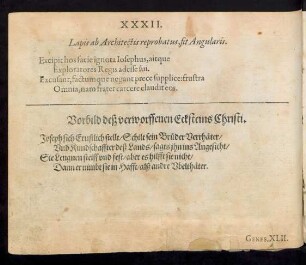 XXXII.
Lapis ab Architectis reprobatus, fit Angularis.
Excipit hos facie ignota Iosephus, atque
Exploratores Regis adesse fui.
Excusant, factumque negant prece supplice: frustra
Omnia, nam frater carcere clausit
Vorbild deß verworffenen Ecksteins Christi.
Joseph sich Ernstlich stellt / Schilt sein Brüder Verrhäter /
Und Kundschaffter deß Lands / sagts jhn ins Angesicht /
Sie Leugnen steiff und fest / aber es hilfft sie nicht /
Dann er nimbt sie in Hafft / alß andre Ubelthäter.
GENES. XLII.